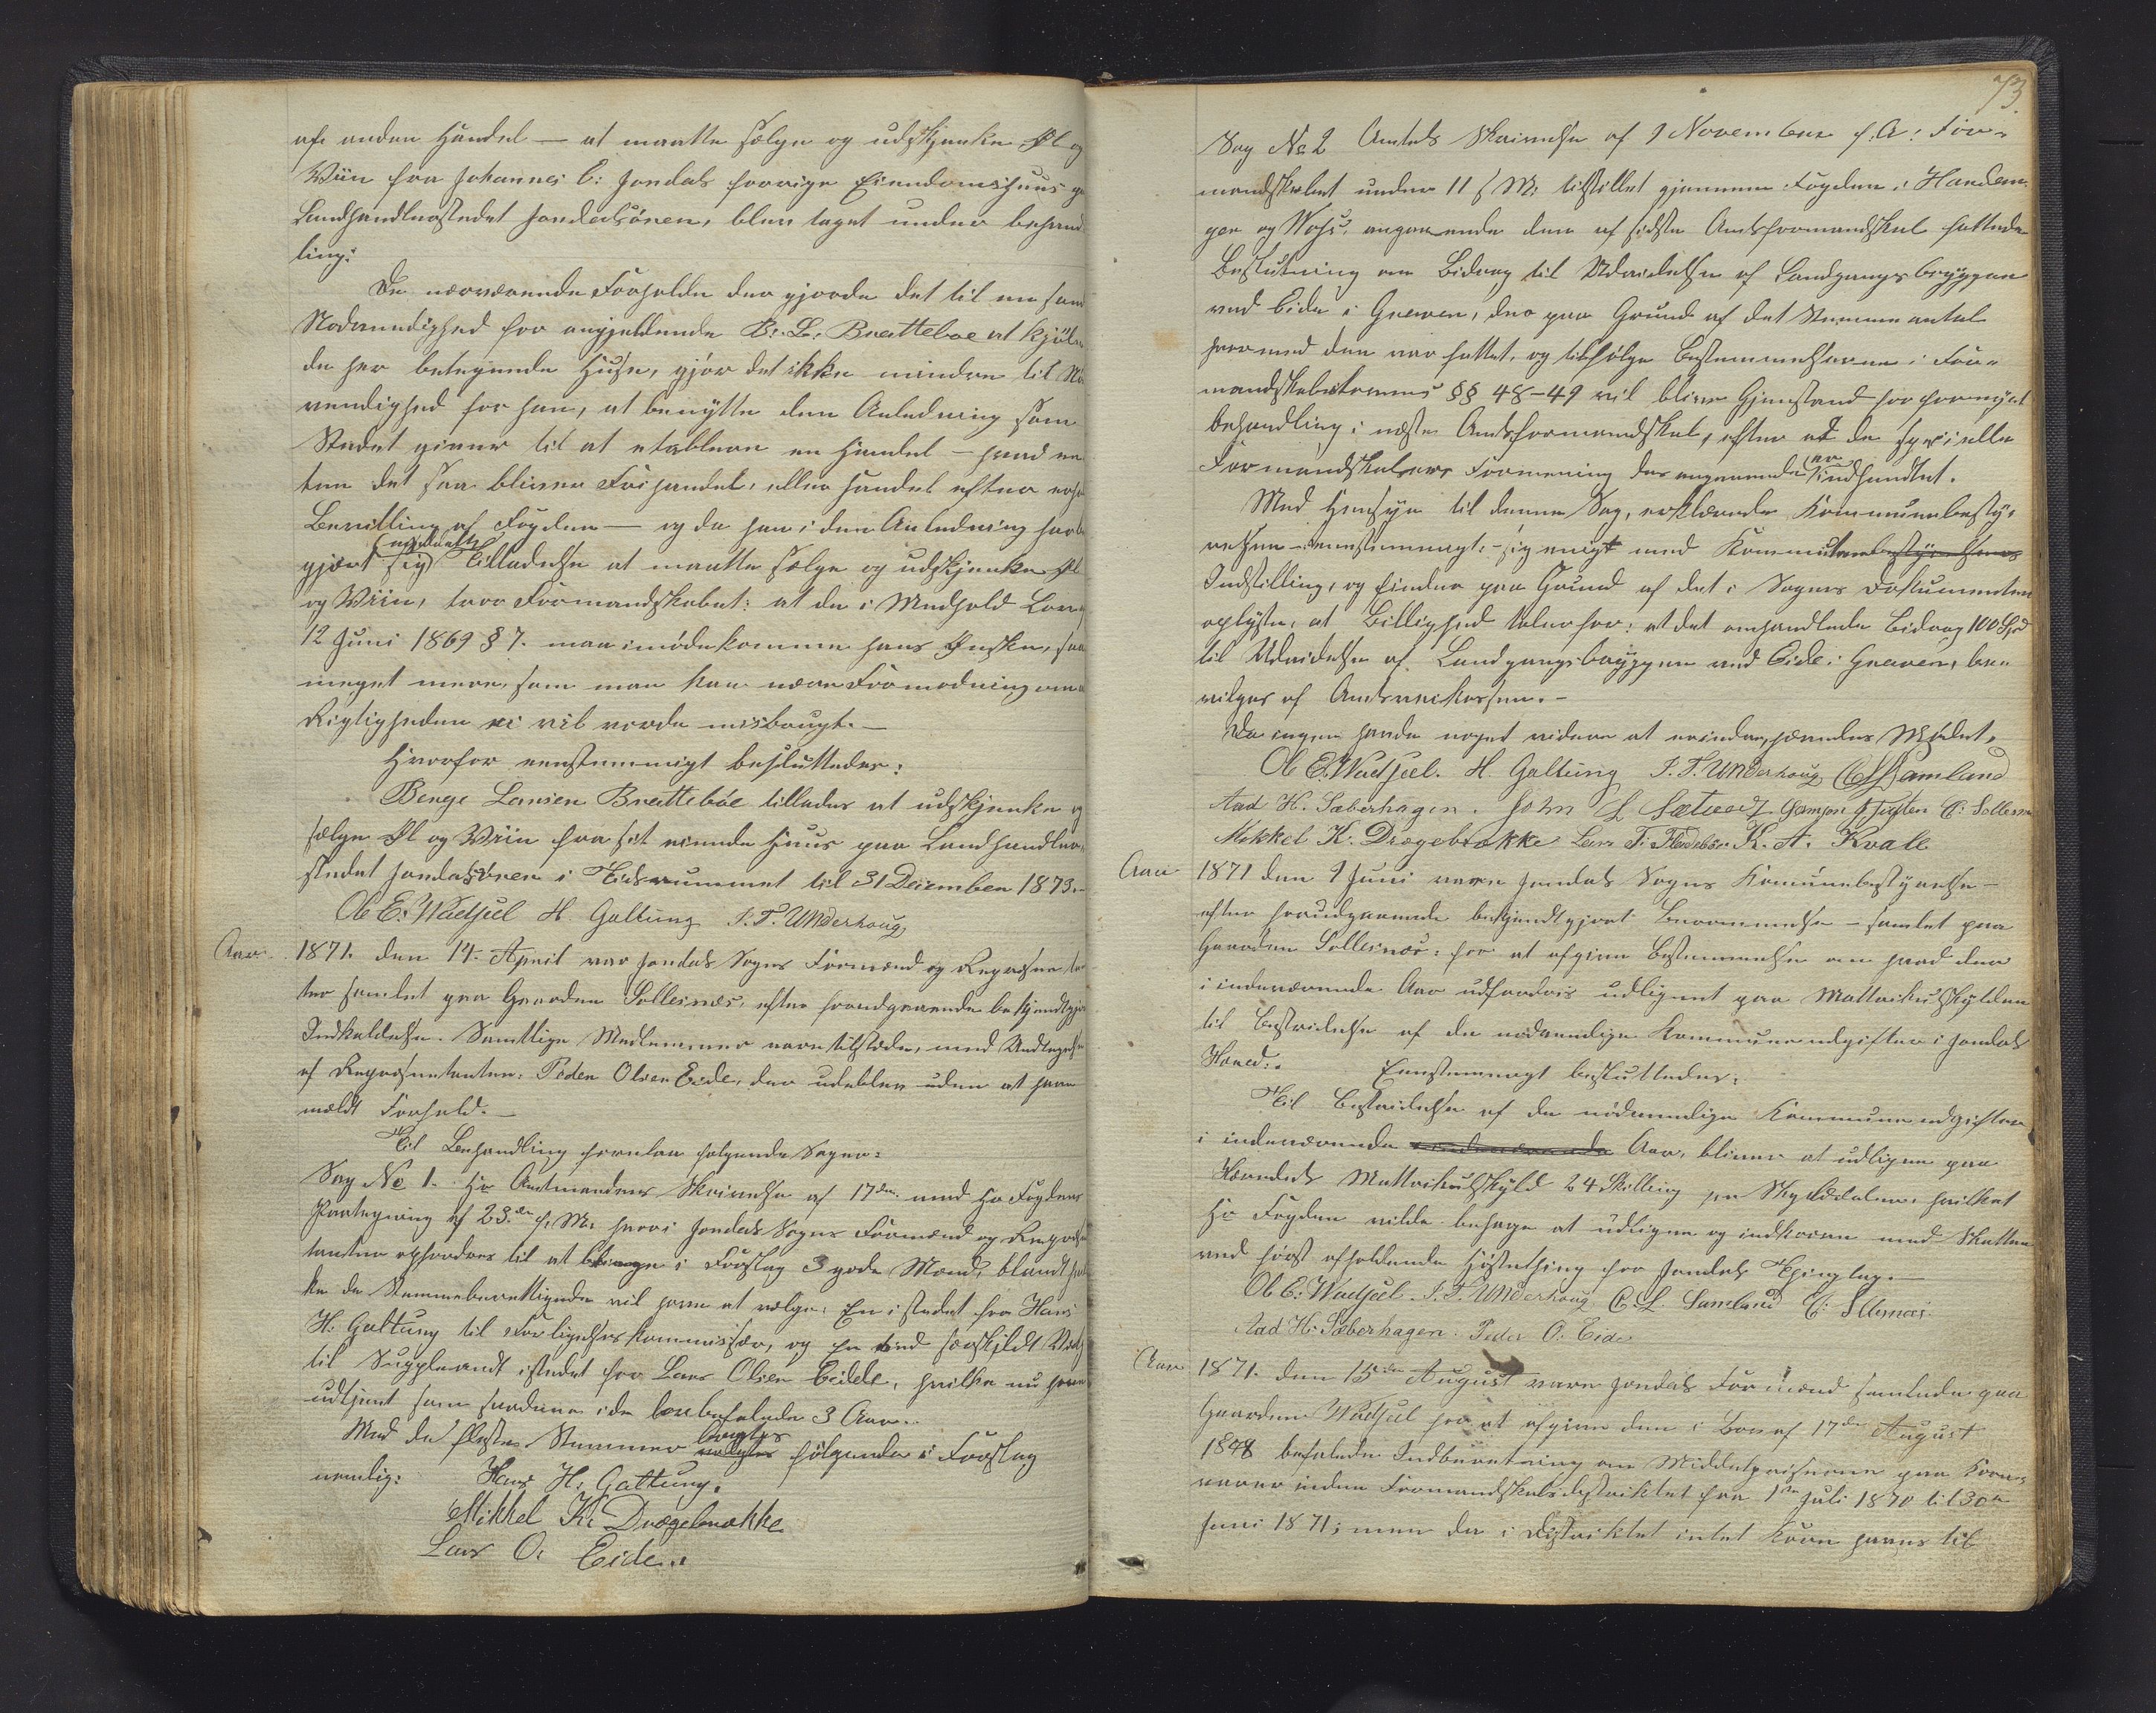 af anden Handel — at maatte sælge og udskjænke Øl og
Viin fra Johannes C: Jondals forrige Eiendomshuus paa
Landhandlerstedet Jondalsören, blev taget under behand
ling:
De nærværende Forholde der gjorde det til en sand
Nødvendighed for angjeldende B: L: Bratteboe at kjöbe
de her betegnede Huse, gjör det ikke mindre til Nö
vendighed for ham, at benytte den Anledning som
Stedet giver til at etablere en Handel — hvad en
ten det saa bliver Frihandel, eller Handel efter
Bevilling af Fogden — og da han i den Anledning har
gjort sig Tilladelse at maatte sælge og udskjænke Øl
og Viin, troer Formandskabet: at de i Medhold Lov af
12 Juni 1869 § 7. maa imödekomme hans Ønske, saa
meget mere, som man kan nære Formodning om
Rigtigheden ei vil vorde misbrugt. —
Hvorfor eenstemmigt besluttedes:
Benge Larsen Brattebøe tillades at udskjænke og
sælge Øl og Viin fra sit eiende Huus paa Landhandler-
stedet Jondalsören i Tidsrummet til 31 December 1873. —
Ole E: Wadsel H. Galtung J. T. Underhoug
Aar
1871. den 14. April var Jondals Sogns Formænd og Repræsen tan
ter samlet paa Gaarden Sollesnæs, efter forudgaaende bekjendtgjort
Indkaldelse. Samtlige Medlemmer vare tilstede, med Undtagelse
af Repræsentanten: Peder Olsen Eide, der udeblev uden at have
meldt Forfald. —
Til Behandling forelaa følgende Sager:
Sag No 1. Hr Amtmandens Skrivelse af 17de med Hr Fogdens
Paategning af 23.de f. M. hvori Jondals Sogns Formænd og Repræsen
tanter opfordres til at bringe i Forslag 3 gode Mænd, blandt hvil
ke de Stemmeberettigede vil have at vælge: En istedet for Hans
H: Galtung til Forligelseskommissær, og en ved særskildt Valg
til Suppleandt istedet for Lars Olsen Eide, hvilke nu have
udtjent som saadanne i de lovbefalede 3 Aar.
Med de fleste Stemmer bragtes følgende i Forslag
nemlig: Hans H: Galtung.
Mikkel K: Drægebrække
Lars O: Eide..
73.
Sag No 2 Amtets Skrivelse af 9 November f. A: For-
mandskabet under 11 f. M: tilstillet gjennem Fogden i Hardan-
ger og Voss, angaaende den af sidste Amtsformandskab fattede
Beslutning om Bidrag til Udvidelse af Landgangsbryggen
ved Eide i Graven, der paa Grund af det Stemmeantal
hvormed den var fattet, og tilfølge Bestemmelserne i For-
mandskabslovens §§ 48-49 vil blive Gjenstand for fornyet
behandling i næste Amtsformandskab, efter at de specielle
Formandskabers Formening der angaaende er indhentet.
Med Hensyn til denne Sag, erklærede Kommunebesty-
relsen - eenstemmigt: - sig enigt med Kommunebestyrelsens
Indstilling, og finder paa Grund af det i Sagens Dokumenter
oplyste, at Billighed taler for: at det omhandlede Bidrag 100 Spd
til Udvidelse af Landgangsbryggen ved Eide i Graven, be-
vilges af Amtsveikassen. —
Da ingen havde noget videre at erindre, hævedes Mødet.
Ole E. Wadsel. H. Galtung J. T. Underhoug C. L. Samland
Aad H. Sæberhagen. John L Sætvedt
Mekkel K: Drægebrække Lars K. A. Kvale
Aar
1871 den 9 Juni vare Jondals Sogns Kommunebestyrelse —
efter forudgaaende bekjendtgjort Berammelse — samlet paa
Gaarden Sollesnæs: for at afgive Bestemmelse om hvad der
i indeværende Aar udfordres udlignet paa Matrikulskylden
til Bestridelse af de nødvendige Kommuneudgifter i Jondals
Hered:. Eenstemmigt besluttedes:
Til Bestridelse af de nödvendige Kommuneudgifter
i indeværende indeværende Aar, bliver at udligne paa
Herredets Matrikulskyld 24 Skilling pr Skylddaler, hvilket
Hr Fogden vilde behage at udligne og indkræve med Skatten
ved først afholdende Høstething for Jondals Thinglag. —
Ole E: Wadsel. J. T. Underhoug C. L. Samland
Aad H: Sæberhagen. Peder O. Eide
Aar
1871. den 15de August vare Jondals Formænd samlede paa
Gaarden Wadsel for at afgive den i Lov af 17de August
1848 befalede Indberetning om Middelpriserne paa Korn-
varer inden Formandskabsdistriktet fra 1ste Juli 1870 til 30te
Juni 1871; men da i Distriktet intet Korn haves til